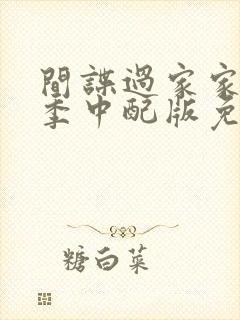 間諜過家家
季中配版免
糖白菜